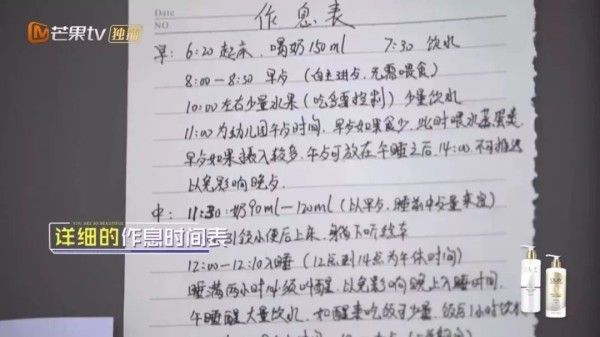 芒果tv 独播
Date
NO.
作息表
早: 6:20起床、喝奶150ml 7:30 饮水
8:00-8:30 早点 (自主进点,无需喂食)
10:00左右少量水果 (吃多要控制) 少量饮水
11:00为幼儿园午点时间,早点如果食少,此时喂水蒸蛋羹
早点如果摄入较多,午点可放在午睡之后,14:00,不可推迟
以免影响晚点.
中: 11:30:奶90ml-120ml (以早点、睡前中少量来定)
YOU ARE SO BEAUTIFUL
详细的作息时间表
小便后上床,
12:00-12:10入睡 (12点到14点为午休时间)
睡满两小时必须叫醒,以免影响晚上入睡时间.
午睡醒大量饮水,如醒来吃饭可少量,饭后1小时饮水